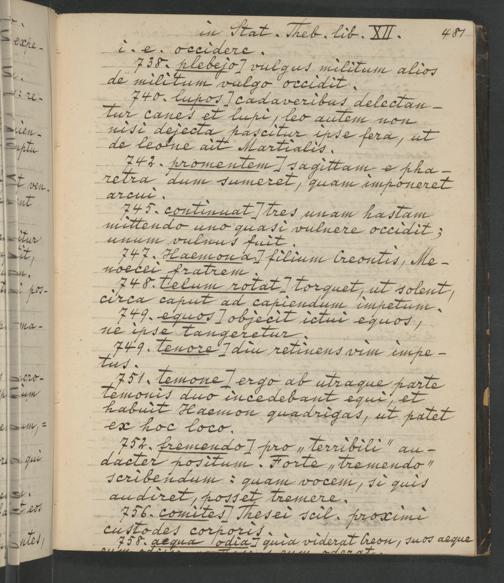 in Stat. Theb. lib. XII. 487
i. e. occidere.
738. plebejo] vulgus militum alios
de militum vulgo occidit.
740. lupos] cadaveribus delectan-
tur canes et lupi, leo autem non
nisi dejecta pascitur ipse fera, ut
de leone ait Martialis.
742. promentem] sagittam e pha-
retra dum sumeret, quam imponeret
arcui.
745. continuat] tres unam hastam
mittendo uno quasi vulnere occidit;
unum vulnus fuit.
747. Haemona] filium Creontis, Me-
noecei fratrem.
748. telum rotat] torquet, ut solent,
circa caput ad capiendum impetum.
749. equos] objecit ictui equos,
ne ipse tangeretur
749. tenore] diu retinens vim impe-
tus.
751. temone] ergo ab utraque parte
temonis duo incedebant equi, et
habuit Haemon quadrigas, ut patet
ex hoc loco.
752. fremendo] pro „terribili" au-
dacter positum. Forte „tremendo"
scribendum: quam vocem, si quis
audiret, posset tremere.
756. comites] Thesei scil. proximi
custodes corporis.
758. aequa odia] quia viderat Creon, suos aeque